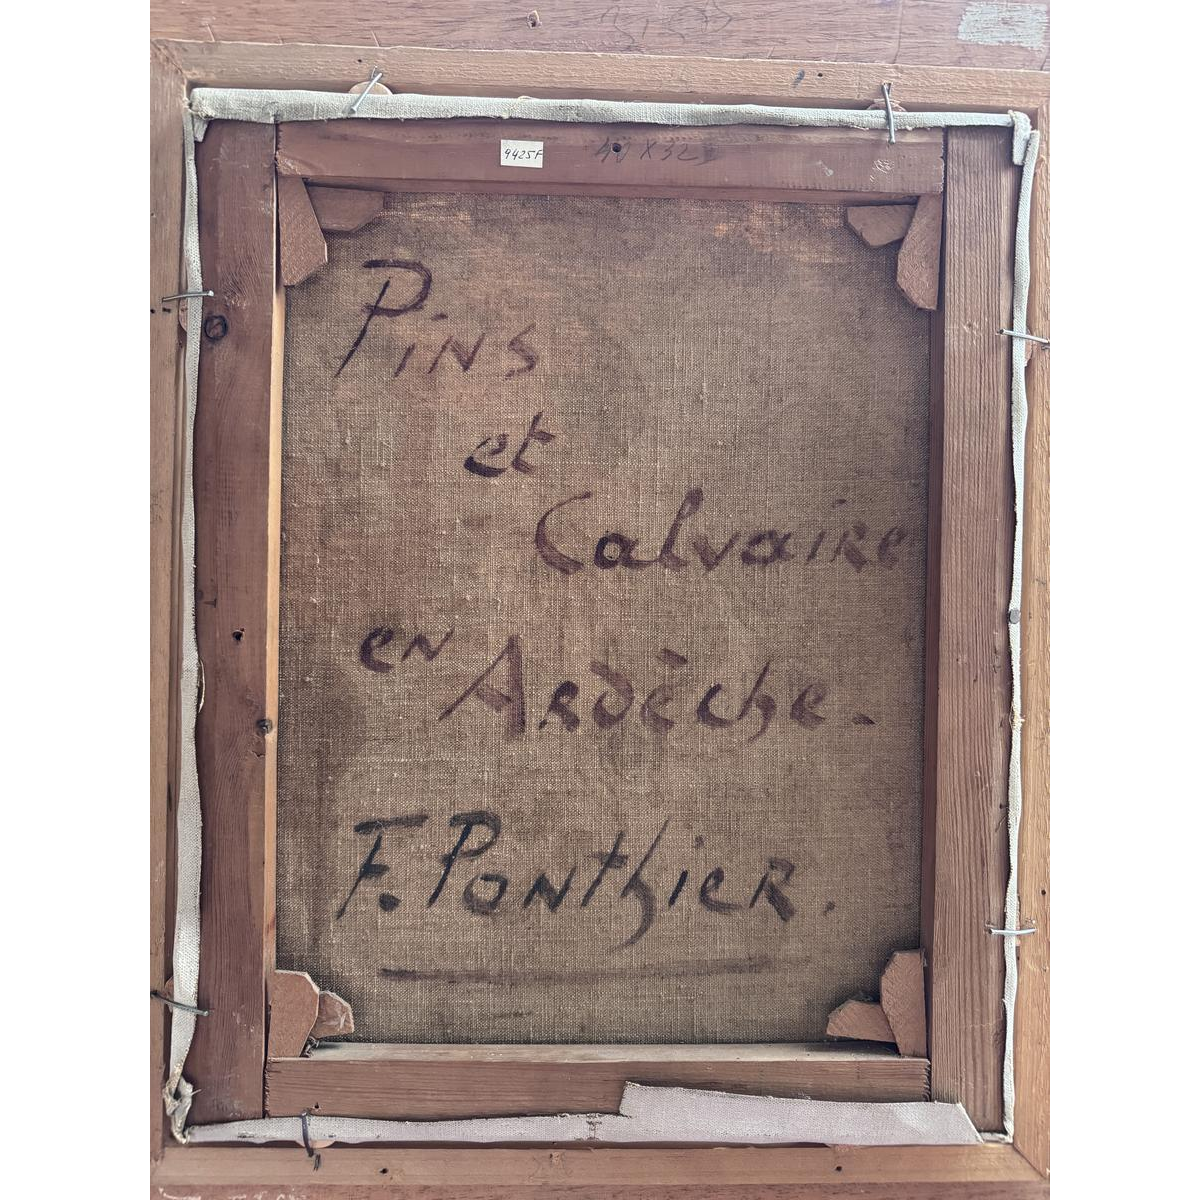 9425F
40 X 32
Pins
et
Calvaire
en Ardèche.
F. Ponthier.